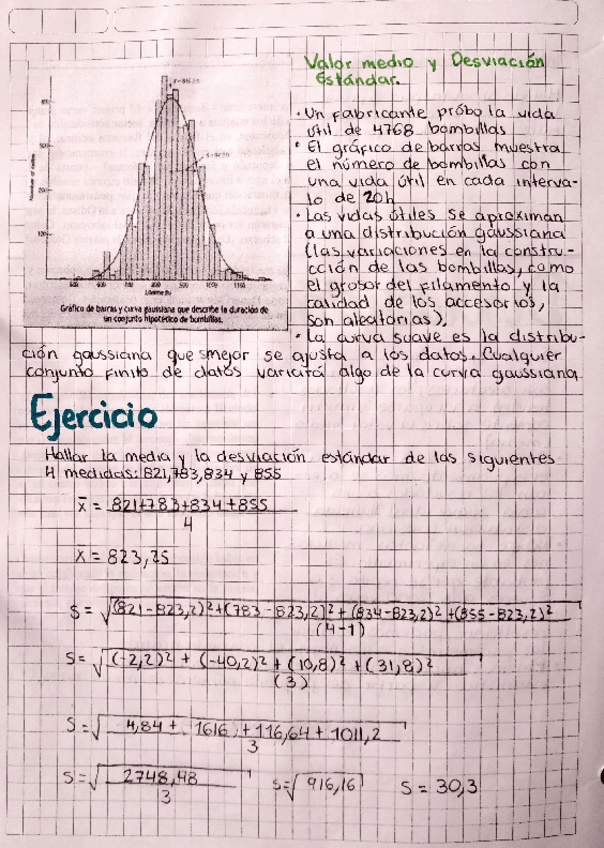 Valor medio y Desviación
Estándar.
• Un fabricante próbo la vida
útil de 4768 bombillas
• El gráfico de barras muestra
el número de bombillas con
una vida útil en cada interva-
lo de 20h
• Las vidas útiles se aproximan
a una distribución gaussiana
(las variaciones en la constru-
cción de las bombillas, como
el grosor del filamento y la
calidad de los accesorios,
son aleatorias).
• La curva suave es la distribu-
ción gaussiana que smejor se ajusta a los datos. Cualquier
conjunto finito de datos variará algo de la curva gaussiana
Gráfico de barras y curva gaussiana que describe la duración de
un conjunto hipotético de bombillas.
Ejercicio
Hallar la media y la desviación estándar de las siguientes
4 medidas: 821,783,834 y 855
x̄ = 821+783+834+855
4
x̄ = 823,25
S = √(821-823,2)²+(783-823,2)²+(834-823,2)²+(855-823,2)²
(4-1)
S = √(-2,2)² + (-40,2)² + (10,8)² + (31,8)²
(3)
S = √4,84 + 1616 + 116,64 + 1011,2
3
S = √2748,48 S = √916,16 S = 30,3
3